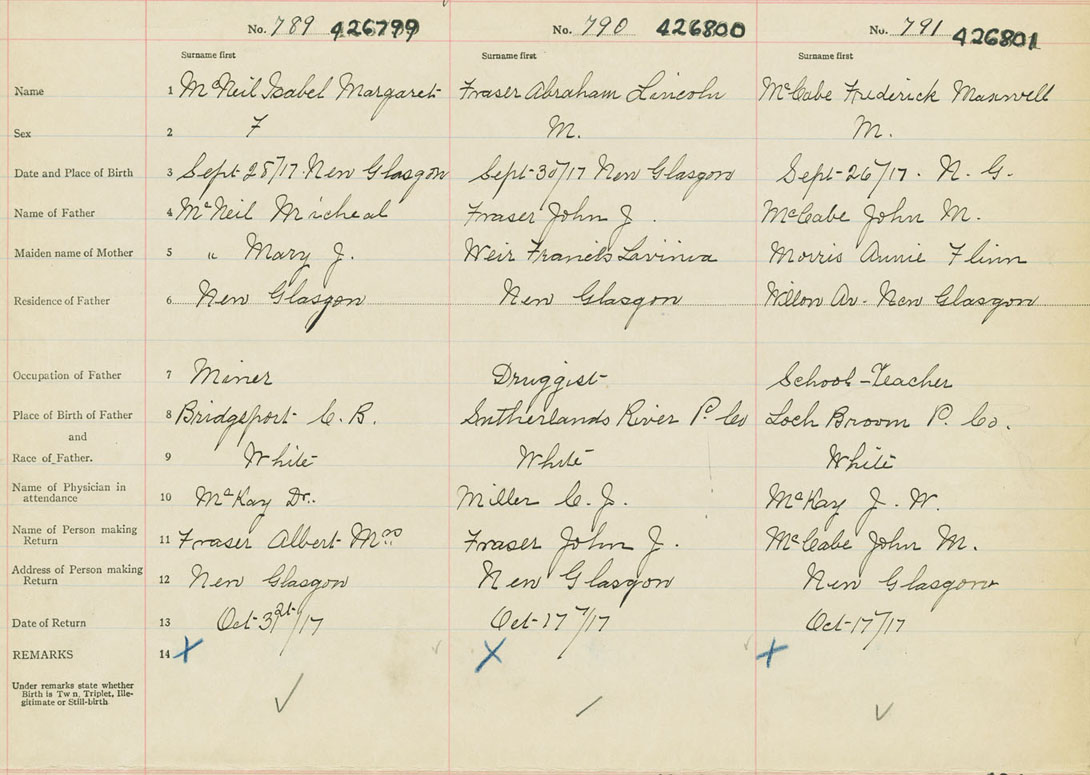 No. 789 426799 No. 790 426800 No. 791 426801
Surname first Surname first Surname first
Name 1 McNeil Isabel Margaret Fraser Abraham Lincoln McCabe Frederick Maxwell
Sex 2 F M. M.
Date and Place of Birth 3 Sept 28/17 New Glasgow Sept 30/17 New Glasgow Sept 26/17. N. G.
Name of Father 4 McNeil Micheal Fraser John J. McCabe John M.
Maiden name of Mother 5 " Mary J. Weir Francis Lavinia Morris Annie Flinn
Residence of Father 6 New Glasgow New Glasgow Av. New Glasgow
Occupation of Father 7 Miner Druggist School-Teacher
Place of Birth of Father 8 Bridgeport C. B. Sutherlands River P. Co Loch Broom P. Co.
and
Race of Father. 9 White White White
Name of Physician in
attendance 10 McKay Dr. Miller C. J. McKay J. W.
Name of Person making
Return 11 Fraser Albert Mrs Fraser John J. McCabe John M.
Address of Person making
Return 12 New Glasgow New Glasgow New Glasgow
Date of Return 13 Oct 31st/17 Oct 17/17 Oct 17/17
REMARKS 14 X X X
Under remarks state whether
Birth is Twn, Triplet, Ille-
gitimate or Still-birth